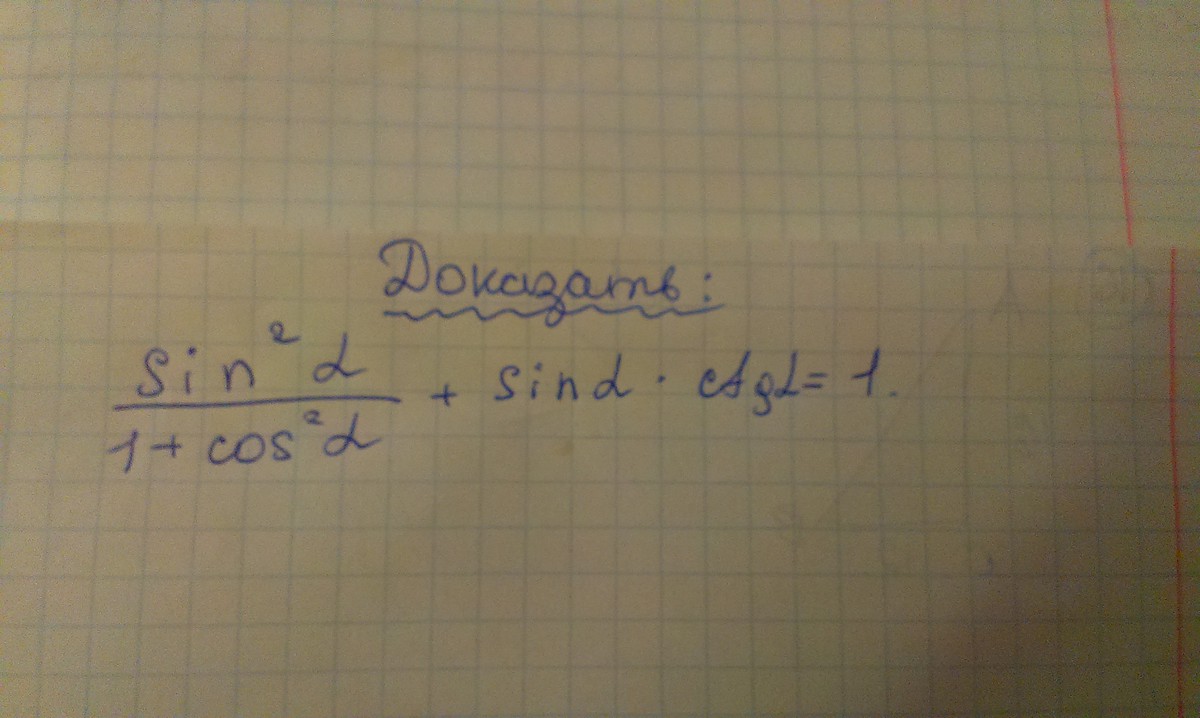 Доказать:
sin²α
1 + cos²α
+ sinα · ctgα = 1.